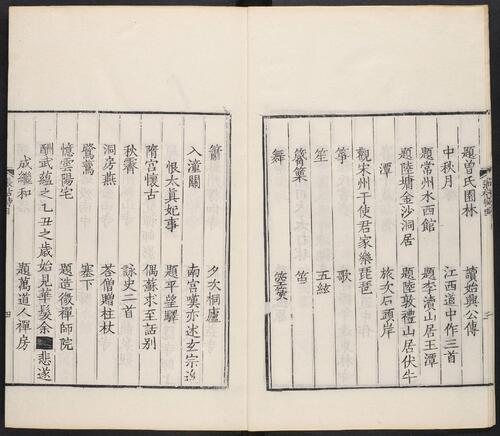 題曾氏園林 讀始興公傳
中秋月 江西道中作三首
題常州水西館 題李瀆山居玉潭
題陸墉金沙洞居 題陸敦禮山居伏牛
潭 旅次石頭岸
觀宋州于使君家樂琵琶
箏 歌
笙 五絃
觱篥 笛
舞 箜篌
簫 夕次桐廬
入潼關 南宮歎亦述玄宗追
恨太真妃事 題平望驛
隋宫懷古 偶蘇求至話別
秋霽 詠史二首
洞房燕 荅僧贈柱杖
鷺鷥 塞下
憶雲陽宅 題造微禪師院
酬武蘊之乙丑之歲始見華髮余 悲遂
成繼和 題萬道人禪房
四